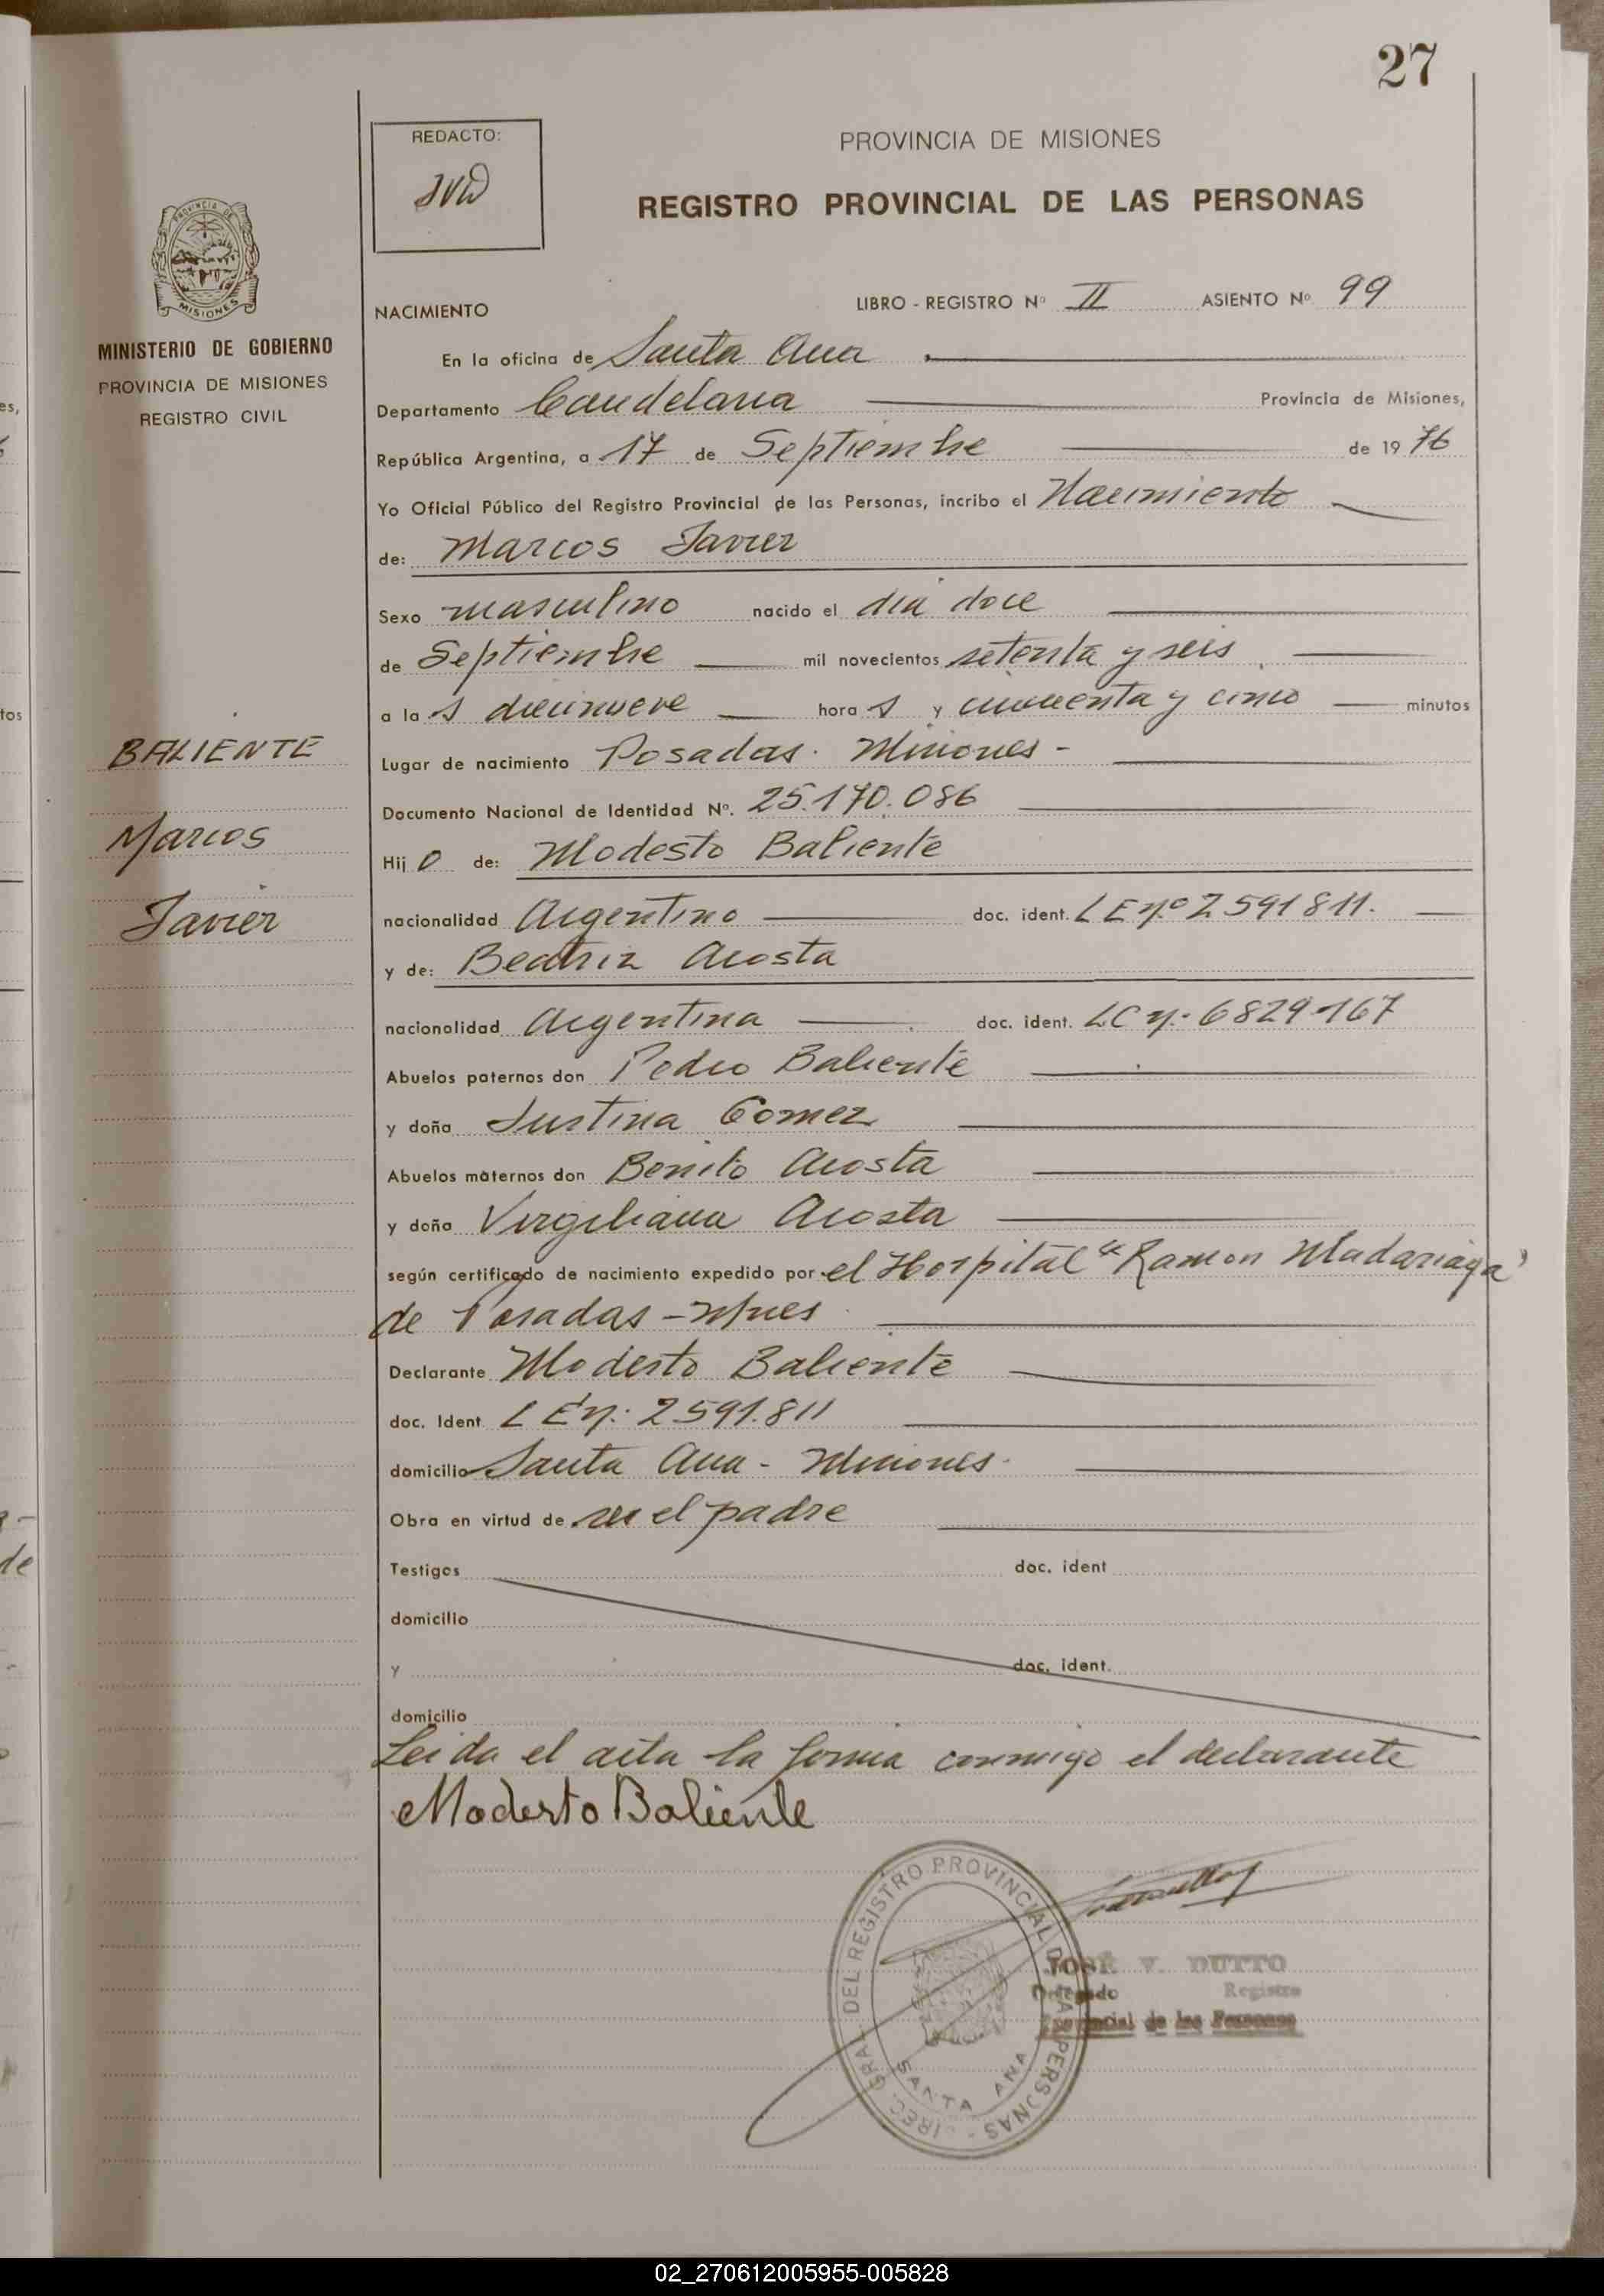 27
REDACTO:
JVD
PROVINCIA DE MISIONES
REGISTRO PROVINCIAL DE LAS PERSONAS
PROVINCIA DE
MISIONES
MINISTERIO DE GOBIERNO
PROVINCIA DE MISIONES
REGISTRO CIVIL
NACIMIENTO LIBRO - REGISTRO Nº II ASIENTO Nº 99
En la oficina de Santa Ana
Departamento Candelaria Provincia de Misiones,
República Argentina, a 17 de Septiembre de 1976
Yo Oficial Público del Registro Provincial de las Personas, incribo el Nacimiento
de: Marcos Javier
Sexo masculino nacido el dia doce
de Septiembre mil novecientos setenta y seis
a la s diecinueve hora s y cincuenta y cinco minutos
BALIENTE
Marcos
Javier
Lugar de nacimiento Posadas. Misiones -
Documento Nacional de Identidad Nº. 25.170.086
Hij o de: Modesto Baliente
nacionalidad Argentino doc. ident. LE nº 2591811.
y de: Beatriz Acosta
nacionalidad Argentina doc. ident. LC n.- 6829167
Abuelos paternos don Pedro Baliente
y doña Justina Gomez
Abuelos maternos don Benito Acosta
y doña Virgiliana Acosta
según certificado de nacimiento expedido por el Hospital "Ramon Madariaga"
de Posadas - Mnes
Declarante Modesto Baliente
doc. Ident LE n: 2591.811
domicilio Santa Ana - Misiones.
Obra en virtud de ser el padre
Testigos doc. ident
domicilio
y doc. ident.
domicilio
Leida el acta la firma conmigo el declarante
Modesto Baliente
DIREC. GRAL. DEL REGISTRO PROVINCIAL DE LAS PERSONAS -
SANTA ANA
JOSÉ V. DUTTO
Delegado Registro
Provincial de las Personas
02_270612005955-005828